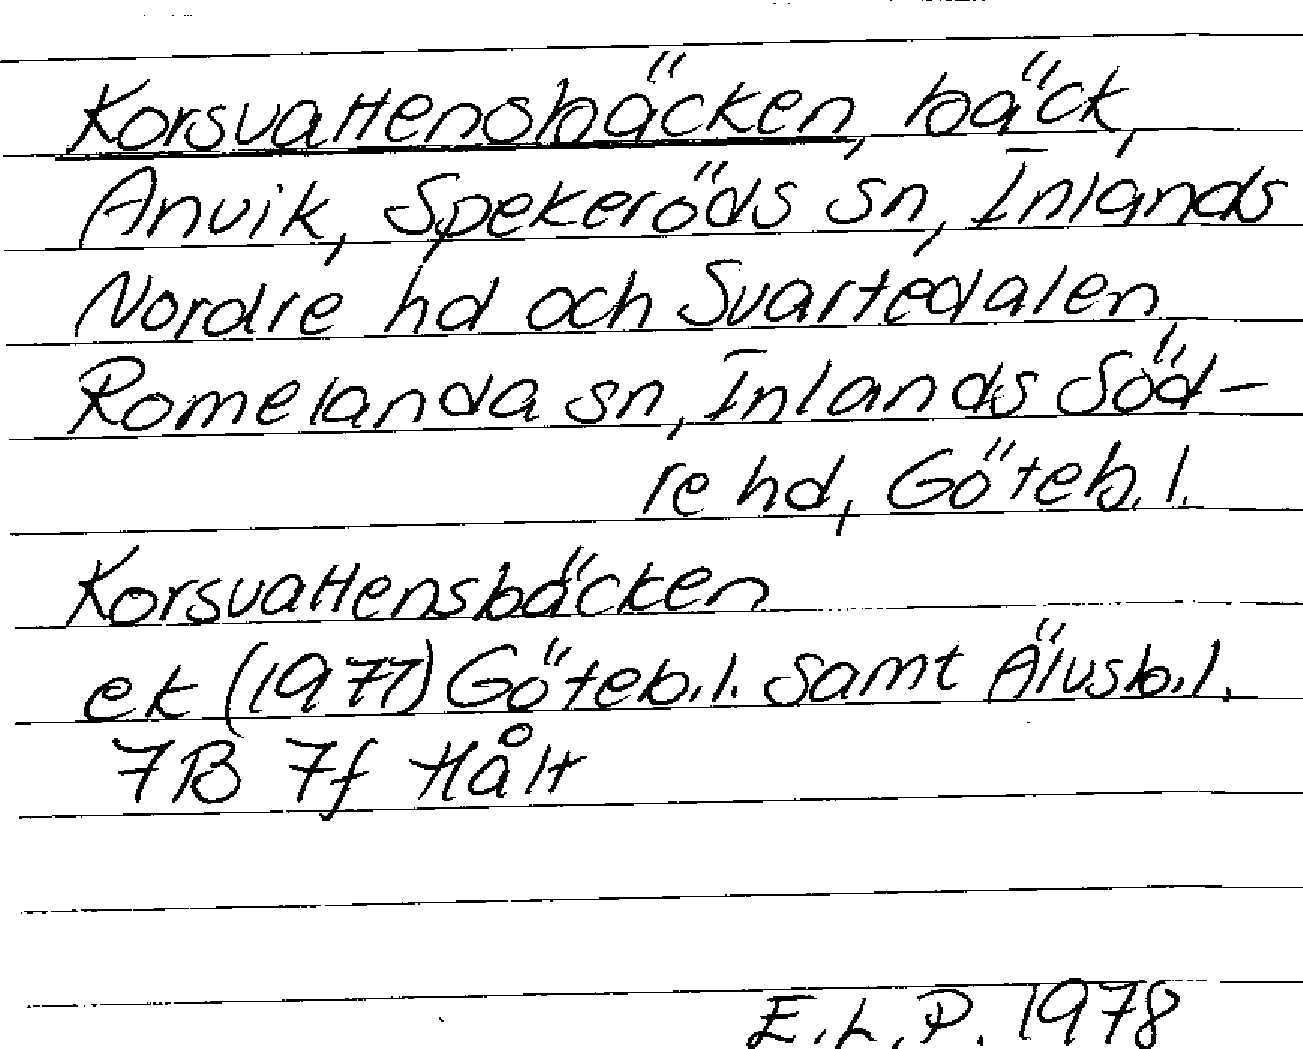 Korsvattensbäcken, bäck,
Anvik, Spekeröds sn, Inlands
Nordre hd och Svartedalen,
Romelanda sn, Inlands Söd-
re hd, Göteb. l.
Korsvattensbäcken
ek (1977) Göteb.l. samt Älvsb.l.
7B 7f Hålt
E.L.P. 1978